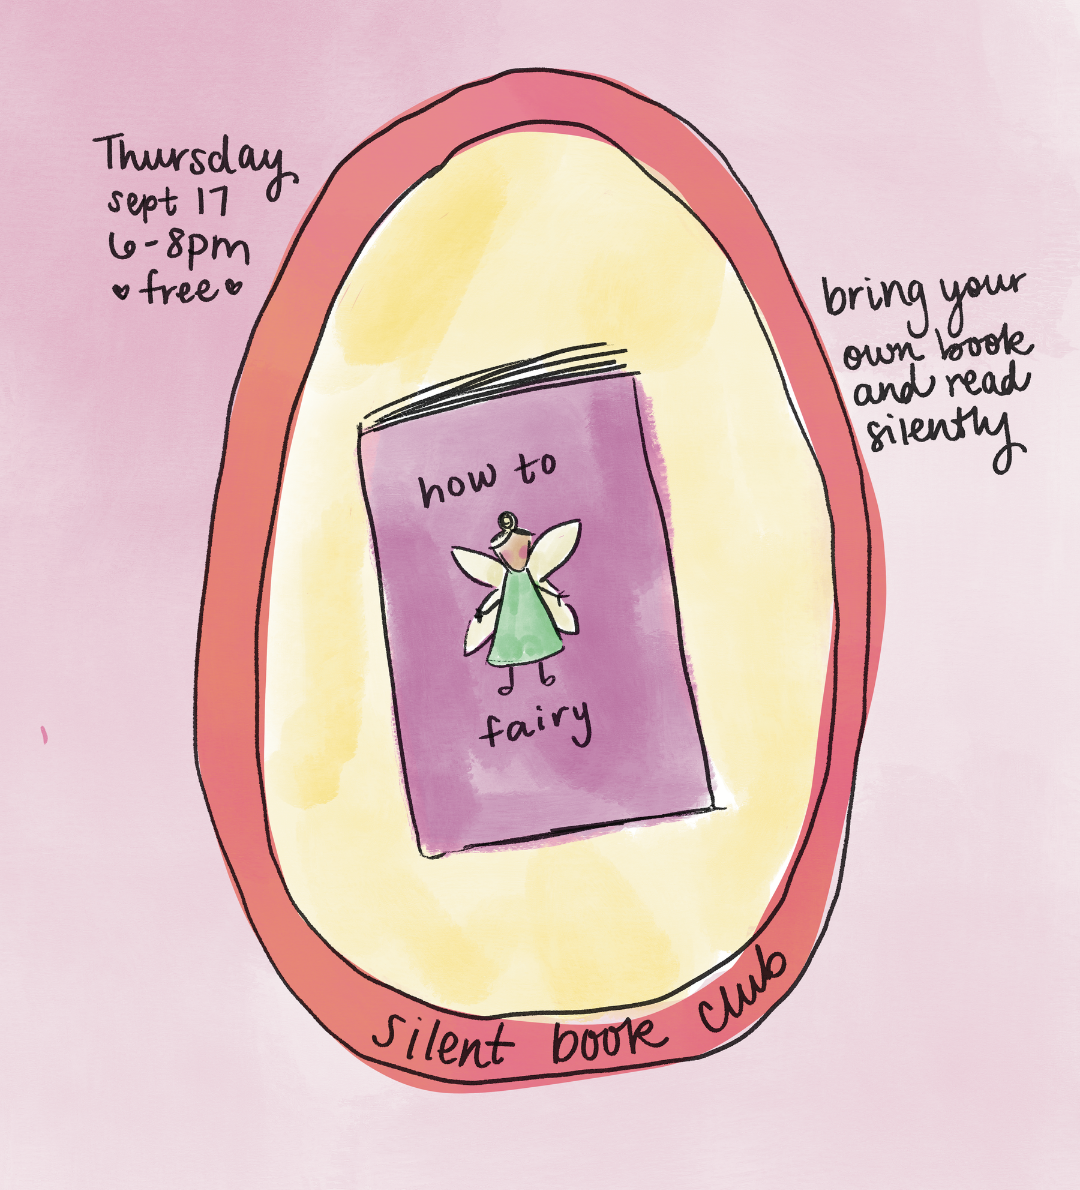 Thursday
sept 17
6-8pm
♥ free ♥
bring your
own book
and read
silently
how to
fairy
silent book club